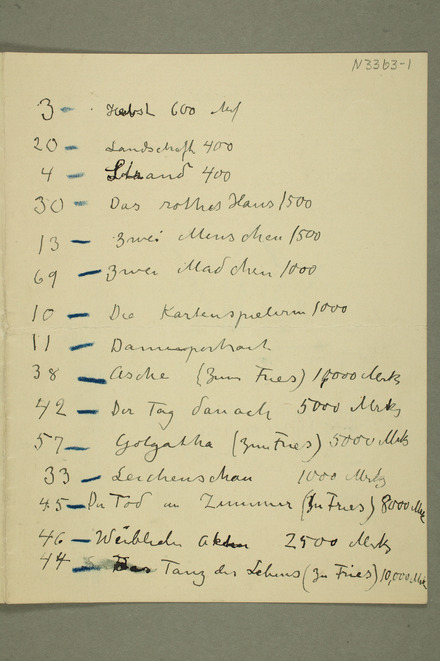 N3363-1
3 - Herbst 600 Mk
20 - Landschaft 400
4 - Strand 400
30 - Das rothes Haus 1500
13 - Zwei Menschen 1500
69 - Zwei Madchen 1000
10 - Die Kartenspielerin 1000
11 - Damenportrait
38 - Asche (Zum Fries) 10,000 Mrk
42 - Der Tag danach 5000 Mrk
57 - Golgatha (Zum Fries) 5000 Mrk
33 - Leichenschau 1000 Mrk
45 - Der Tod im Zimmer (Zu Fries) 8000 Mrk
46 - Weibliche Akten 2500 Mrk
44 - Tanz des Lebens (Zu Fries) 10,000 Mrk